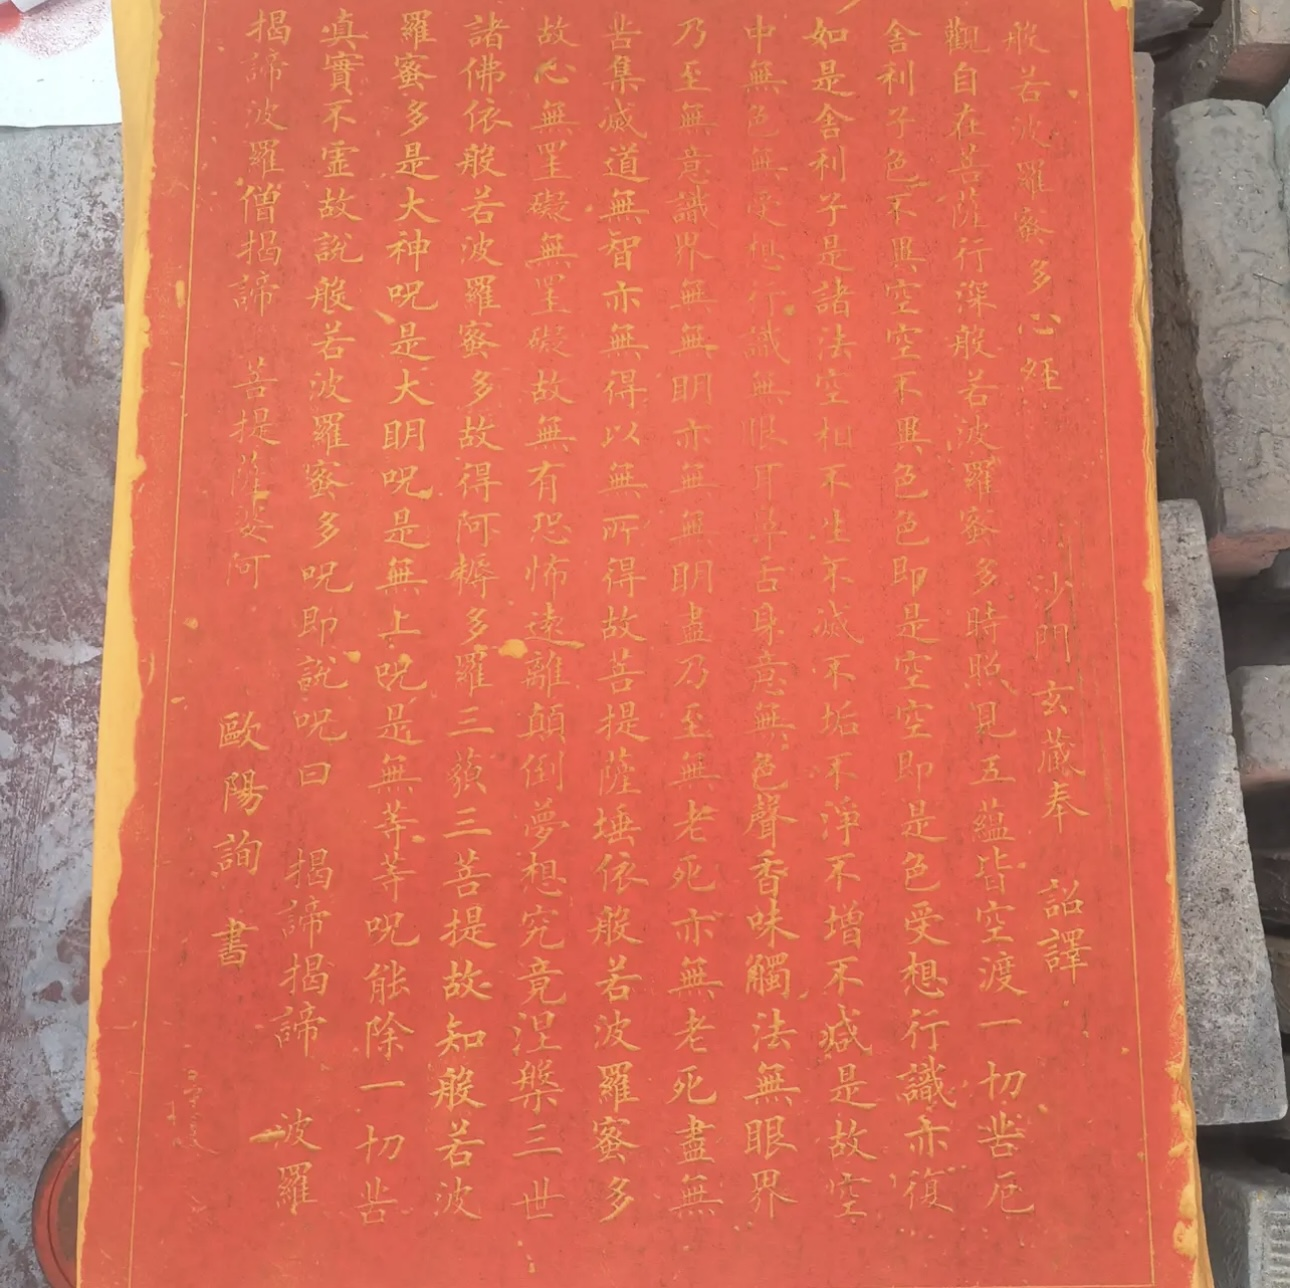 般若波羅蜜多心經
沙門玄蔵奉 詔譯
觀自在菩薩行深般若波羅蜜多時照見五蘊皆空渡一切苦厄
舍利子色不異空空不異色色即是空空即是色受想行識亦復
如是舍利子是諸法空相不生不滅不垢不淨不增不減是故空
中無色無受想行識無眼耳鼻舌身意無色聲香味觸法無眼界
乃至無意識界無無明亦無無明盡乃至無老死亦無老死盡無
苦集滅道無智亦無得以無所得故菩提薩埵依般若波羅蜜多
故心無罣礙無罣礙故無有恐怖遠離顛倒夢想究竟涅槃三世
諸佛依般若波羅蜜多故得阿耨多羅三藐三菩提故知般若波
羅蜜多是大神呪是大明呪是無上呪是無等等呪能除一切苦
真實不虛故說般若波羅蜜多呪即說呪曰 揭諦揭諦 波羅
揭諦波羅僧揭諦 菩提薩婆訶
歐陽詢 書